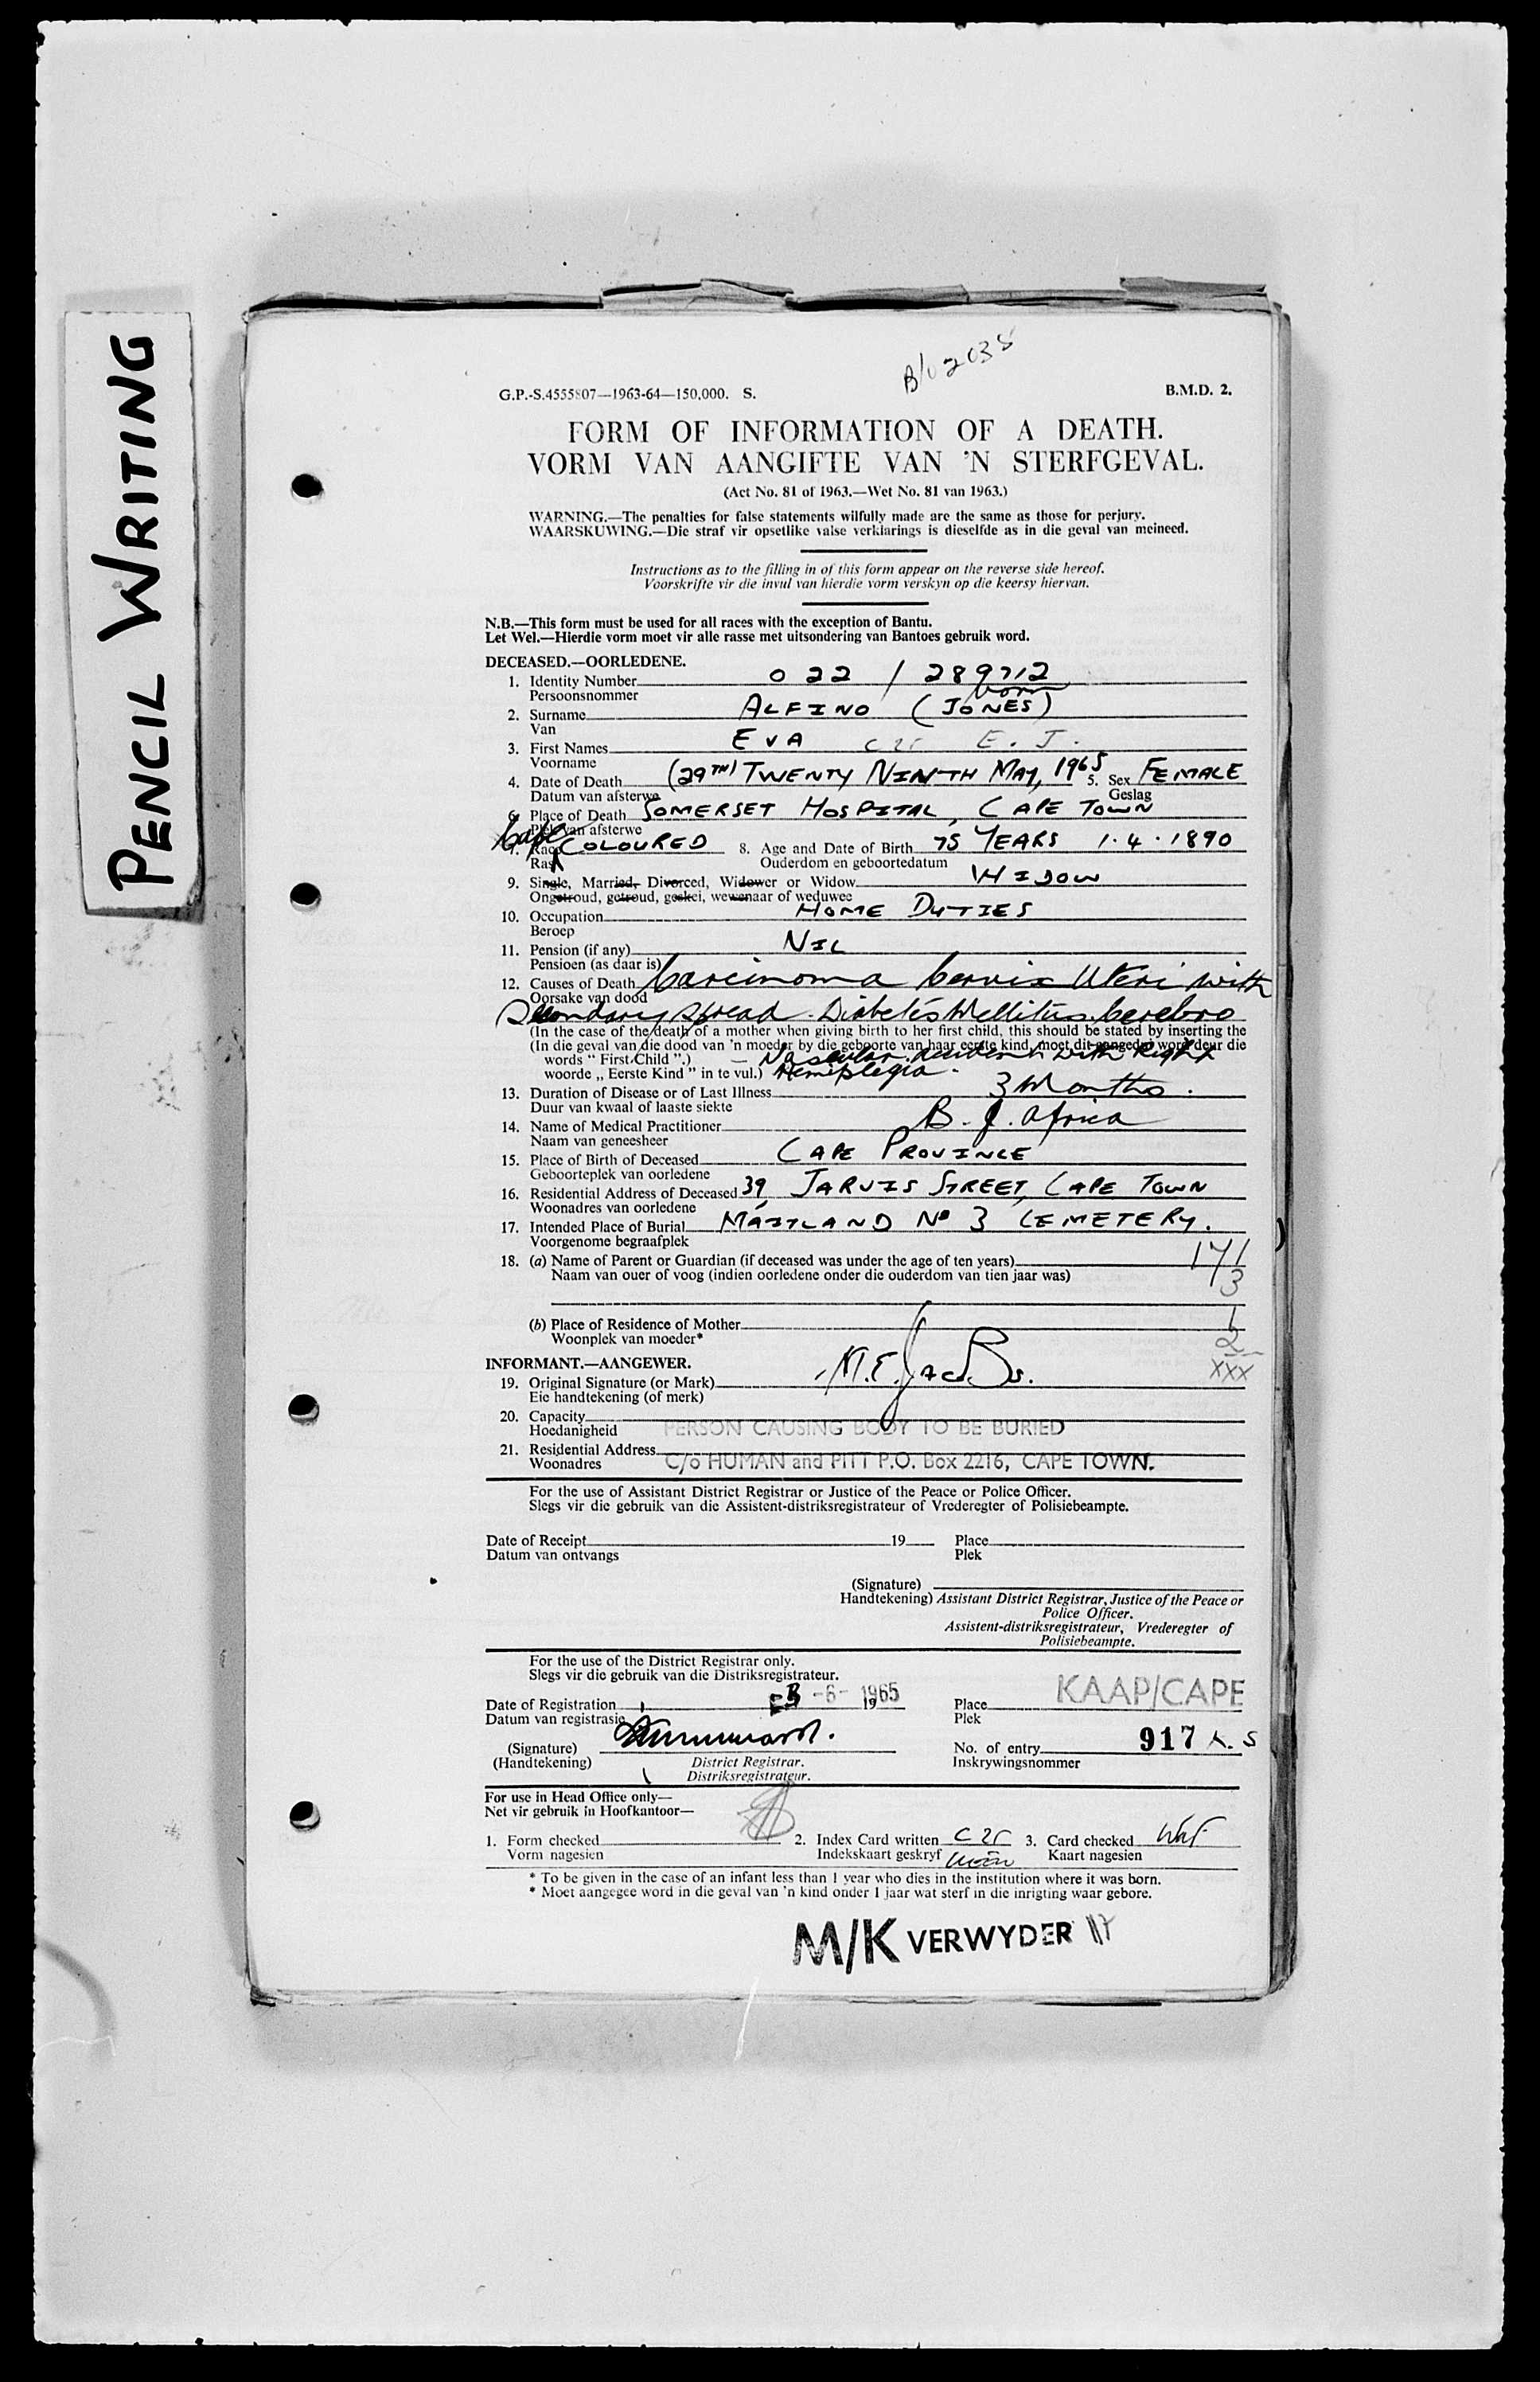 PENCIL WRITING
B/U 2035
G.P.-S.4555807—1963-64—150,000. S. B.M.D. 2.
FORM OF INFORMATION OF A DEATH.
VORM VAN AANGIFTE VAN 'N STERFGEVAL.
(Act No. 81 of 1963.—Wet No. 81 van 1963.)
WARNING.—The penalties for false statements wilfully made are the same as those for perjury.
WAARSKUWING.—Die straf vir opsetlike valse verklarings is dieselfde as in die geval van meineed.
Instructions as to the filling in of this form appear on the reverse side hereof.
Voorskrifte vir die invul van hierdie vorm verskyn op die keersy hiervan.
N.B.—This form must be used for all races with the exception of Bantu.
Let Wel.—Hierdie vorm moet vir alle rasse met uitsondering van Bantoes gebruik word.
DECEASED.—OORLEDENE.
1. Identity Number 022 / 289712
Persoonsnommer born
2. Surname ALFINO (JONES)
Van
3. First Names EVA C2r E. J.
Voorname
4. Date of Death (29TH) TWENTY NINTH MAY, 1965 5. Sex FEMALE
Datum van afsterwe Geslag
6. Place of Death SOMERSET HOSPITAL, CAPE TOWN
Plek van afsterwe
Cape
7. Race COLOURED 8. Age and Date of Birth 75 YEARS 1.4.1890
Ras Ouderdom en geboortedatum
9. Single, Married, Divorced, Widower or Widow WIDOW
Ongetroud, getroud, geskei, wewenaar of weduwee
10. Occupation HOME DUTIES
Beroep
11. Pension (if any) NIL
Pensioen (as daar is)
12. Causes of Death Carcinoma Cervix Uteri with
Oorsake van dood
Secondary spread. Diabetes Mellitus. Cerebro
(In the case of the death of a mother when giving birth to her first child, this should be stated by inserting the
(In die geval van die dood van 'n moeder by die geboorte van haar eerste kind, moet dit aangedui word deur die
words " First Child ".) - Vascular accident with Right
woorde „ Eerste Kind " in te vul.) Hemiplegia.
13. Duration of Disease or of Last Illness 3 Months.
Duur van kwaal of laaste siekte
14. Name of Medical Practitioner B. J. Africa
Naam van geneesheer
15. Place of Birth of Deceased CAPE PROVINCE
Geboorteplek van oorledene
16. Residential Address of Deceased 39, JARVIS STREET, CAPE TOWN
Woonadres van oorledene
17. Intended Place of Burial MAITLAND No 3 CEMETERY.
Voorgenome begraafplek
18. (a) Name of Parent or Guardian (if deceased was under the age of ten years) 171
Naam van ouer of voog (indien oorledene onder die ouderdom van tien jaar was) 3
(b) Place of Residence of Mother 1
Woonplek van moeder* 2
INFORMANT.—AANGEWER. XXX
19. Original Signature (or Mark) M.E. Jacobs.
Eie handtekening (of merk)
20. Capacity
Hoedanigheid PERSON CAUSING BODY TO BE BURIED
21. Residential Address
Woonadres C/o HUMAN and PITT P.O. Box 2216, CAPE TOWN.
For the use of Assistant District Registrar or Justice of the Peace or Police Officer.
Slegs vir die gebruik van die Assistent-distriksregistrateur of Vrederegter of Polisiebeampte.
Date of Receipt 19 Place
Datum van ontvangs Plek
(Signature)
Handtekening) Assistant District Registrar, Justice of the Peace or
Police Officer.
Assistent-distriksregistrateur, Vrederegter of
Polisiebeampte.
For the use of the District Registrar only.
Slegs vir die gebruik van die Distriksregistrateur.
Date of Registration 3 -6- 1965 Place KAAP/CAPE
Datum van registrasie 19 Plek
(Signature) No. of entry 917 K. S
(Handtekening) District Registrar. Inskrywingsnommer
Distriksregistrateur.
For use in Head Office only—
Net vir gebruik in Hoofkantoor—
1. Form checked 2. Index Card written C2r 3. Card checked
Vorm nagesien Indekskaart geskryf Kaart nagesien
* To be given in the case of an infant less than 1 year who dies in the institution where it was born.
* Moet aangegee word in die geval van 'n kind onder 1 jaar wat sterf in die inrigting waar gebore.
M/K VERWYDER